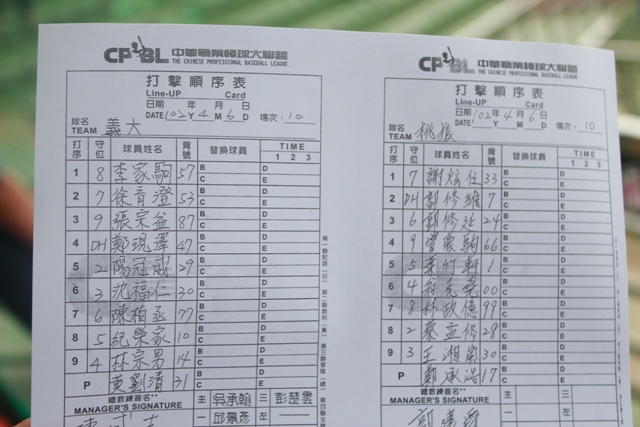 CPBL 中華職業棒球大聯盟
THE CHINESE PROFESSIONAL BASEBALL LEAGUE
打擊順序表
Line-UP Card
日期 年 月 日
DATE 102 Y 4 M 6 D 場次: 10
隊名 TEAM 義大
打序 守位 球員姓名 背號 替換球員 TIME 1 2 3
1 8 李家駒 57 B C D E
2 7 徐育澄 53 B C D E
3 9 張宗益 87 B C D E
4 DH 鄭現澤 47 B C D E
5 2 陽冠威 29 B C D E
6 3 沈福仁 30 B C D E
7 6 陳柏丞 77 B C D E
8 5 紀榮家 10 B C D E
9 4 林宗男 14 B C D E
P 黃劉清 31 B C D E
總教練簽名**
MANAGER'S SIGNATURE
主 吳承翰 三 彭楚雲
一 邱景彥 左
CPBL 中華職業棒球大聯盟
THE CHINESE PROFESSIONAL BASEBALL LEAGUE
打擊順序表
Line-UP Card
日期 年 月 日
DATE 102 Y 4 M 6 D 場次: 10
隊名 TEAM 桃猿
打序 守位 球員姓名 背號 替換球員 TIME 1 2 3
1 7 謝炫任 33 B C D E
2 DH 郭修維 7 B C D E
3 6 郭修延 24 B C D E
4 9 66 B C D E
5 5 葉竹軒 1 B C D E
6 4 00 B C D E
7 8 林政億 99 B C D E
8 2 蔡孟修 28 B C D E
9 3 王湘 30 B C D E
P 鄭承浩 17 B C D E
總教練簽名**
MANAGER'S SIGNATURE
主 三
一 左